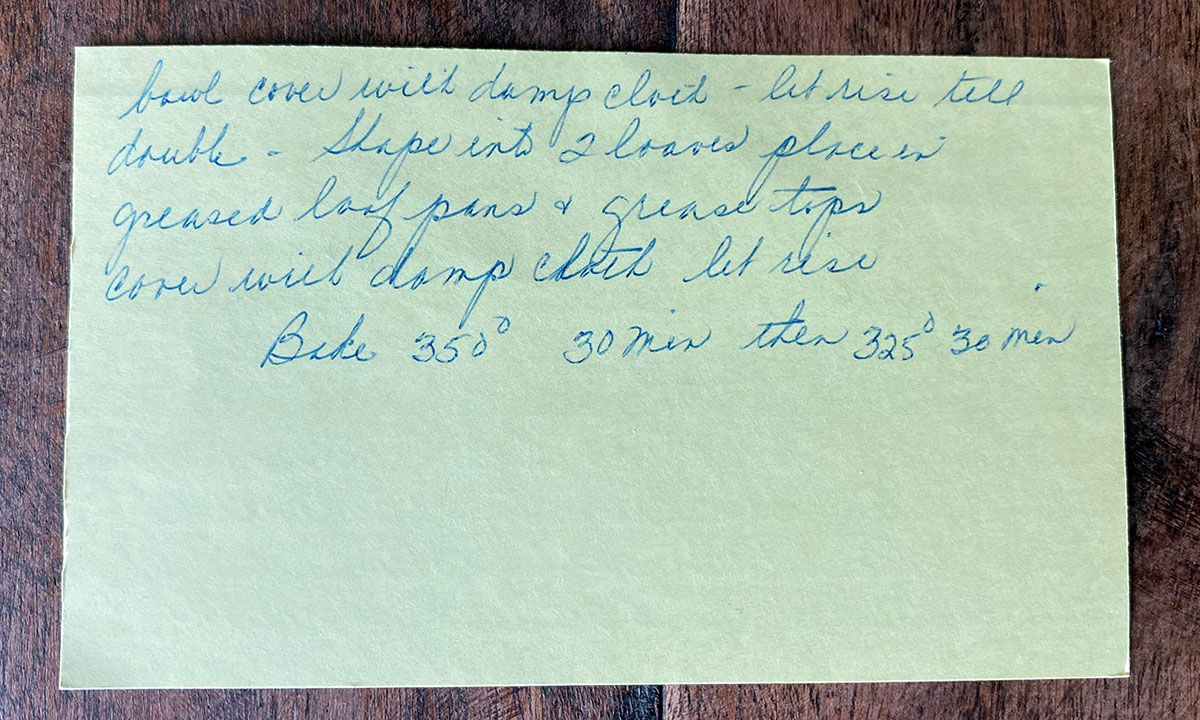 bowl cover with damp cloth - let rise till
double - Shape into 2 loaves place in
greased loaf pans & grease tops
cover with damp cloth let rise
Bake 350° 30 min then 325° 30 min